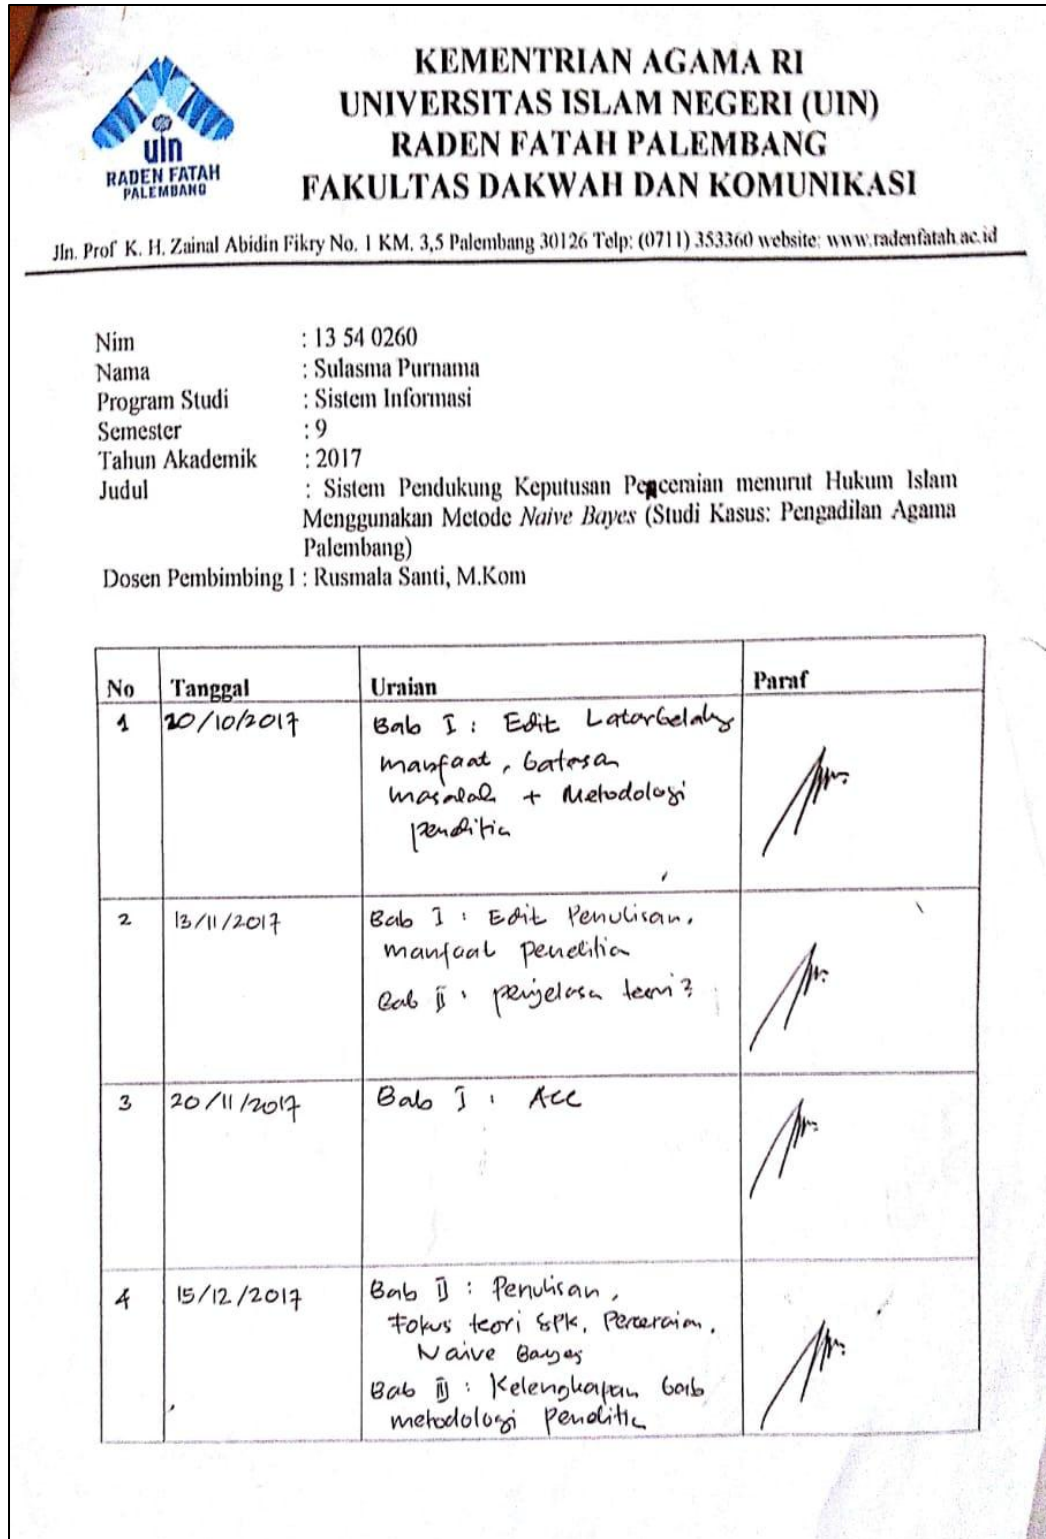 uin
RADEN FATAH
PALEMBANG
KEMENTRIAN AGAMA RI
UNIVERSITAS ISLAM NEGERI (UIN)
RADEN FATAH PALEMBANG
FAKULTAS DAKWAH DAN KOMUNIKASI
Jln. Prof K. H. Zainal Abidin Fikry No. 1 KM. 3,5 Palembang 30126 Telp: (0711) 353360 website: www.radenfatah.ac.id
Nim : 13 54 0260
Nama : Sulasma Purnama
Program Studi : Sistem Informasi
Semester : 9
Tahun Akademik : 2017
Judul : Sistem Pendukung Keputusan Perceraian menurut Hukum Islam
Menggunakan Metode Naive Bayes (Studi Kasus: Pengadilan Agama
Palembang)
Dosen Pembimbing I : Rusmala Santi, M.Kom
No Tanggal Uraian Paraf
1 20/10/2017 Bab I : Edit Latarbelakg
manfaat, batasan
masalah + Metodologi
penelitia
2 13/11/2017 Bab I : Edit Penulisan,
manfaat penelitia
Bab II : penjelasa teori?
3 20/11/2017 Bab I : ACC
4 15/12/2017 Bab II : Penulisan,
Fokus teori SPK, Perceraian,
Naive Bayes
Bab III : Kelengkapan bab
metodologi penelitia